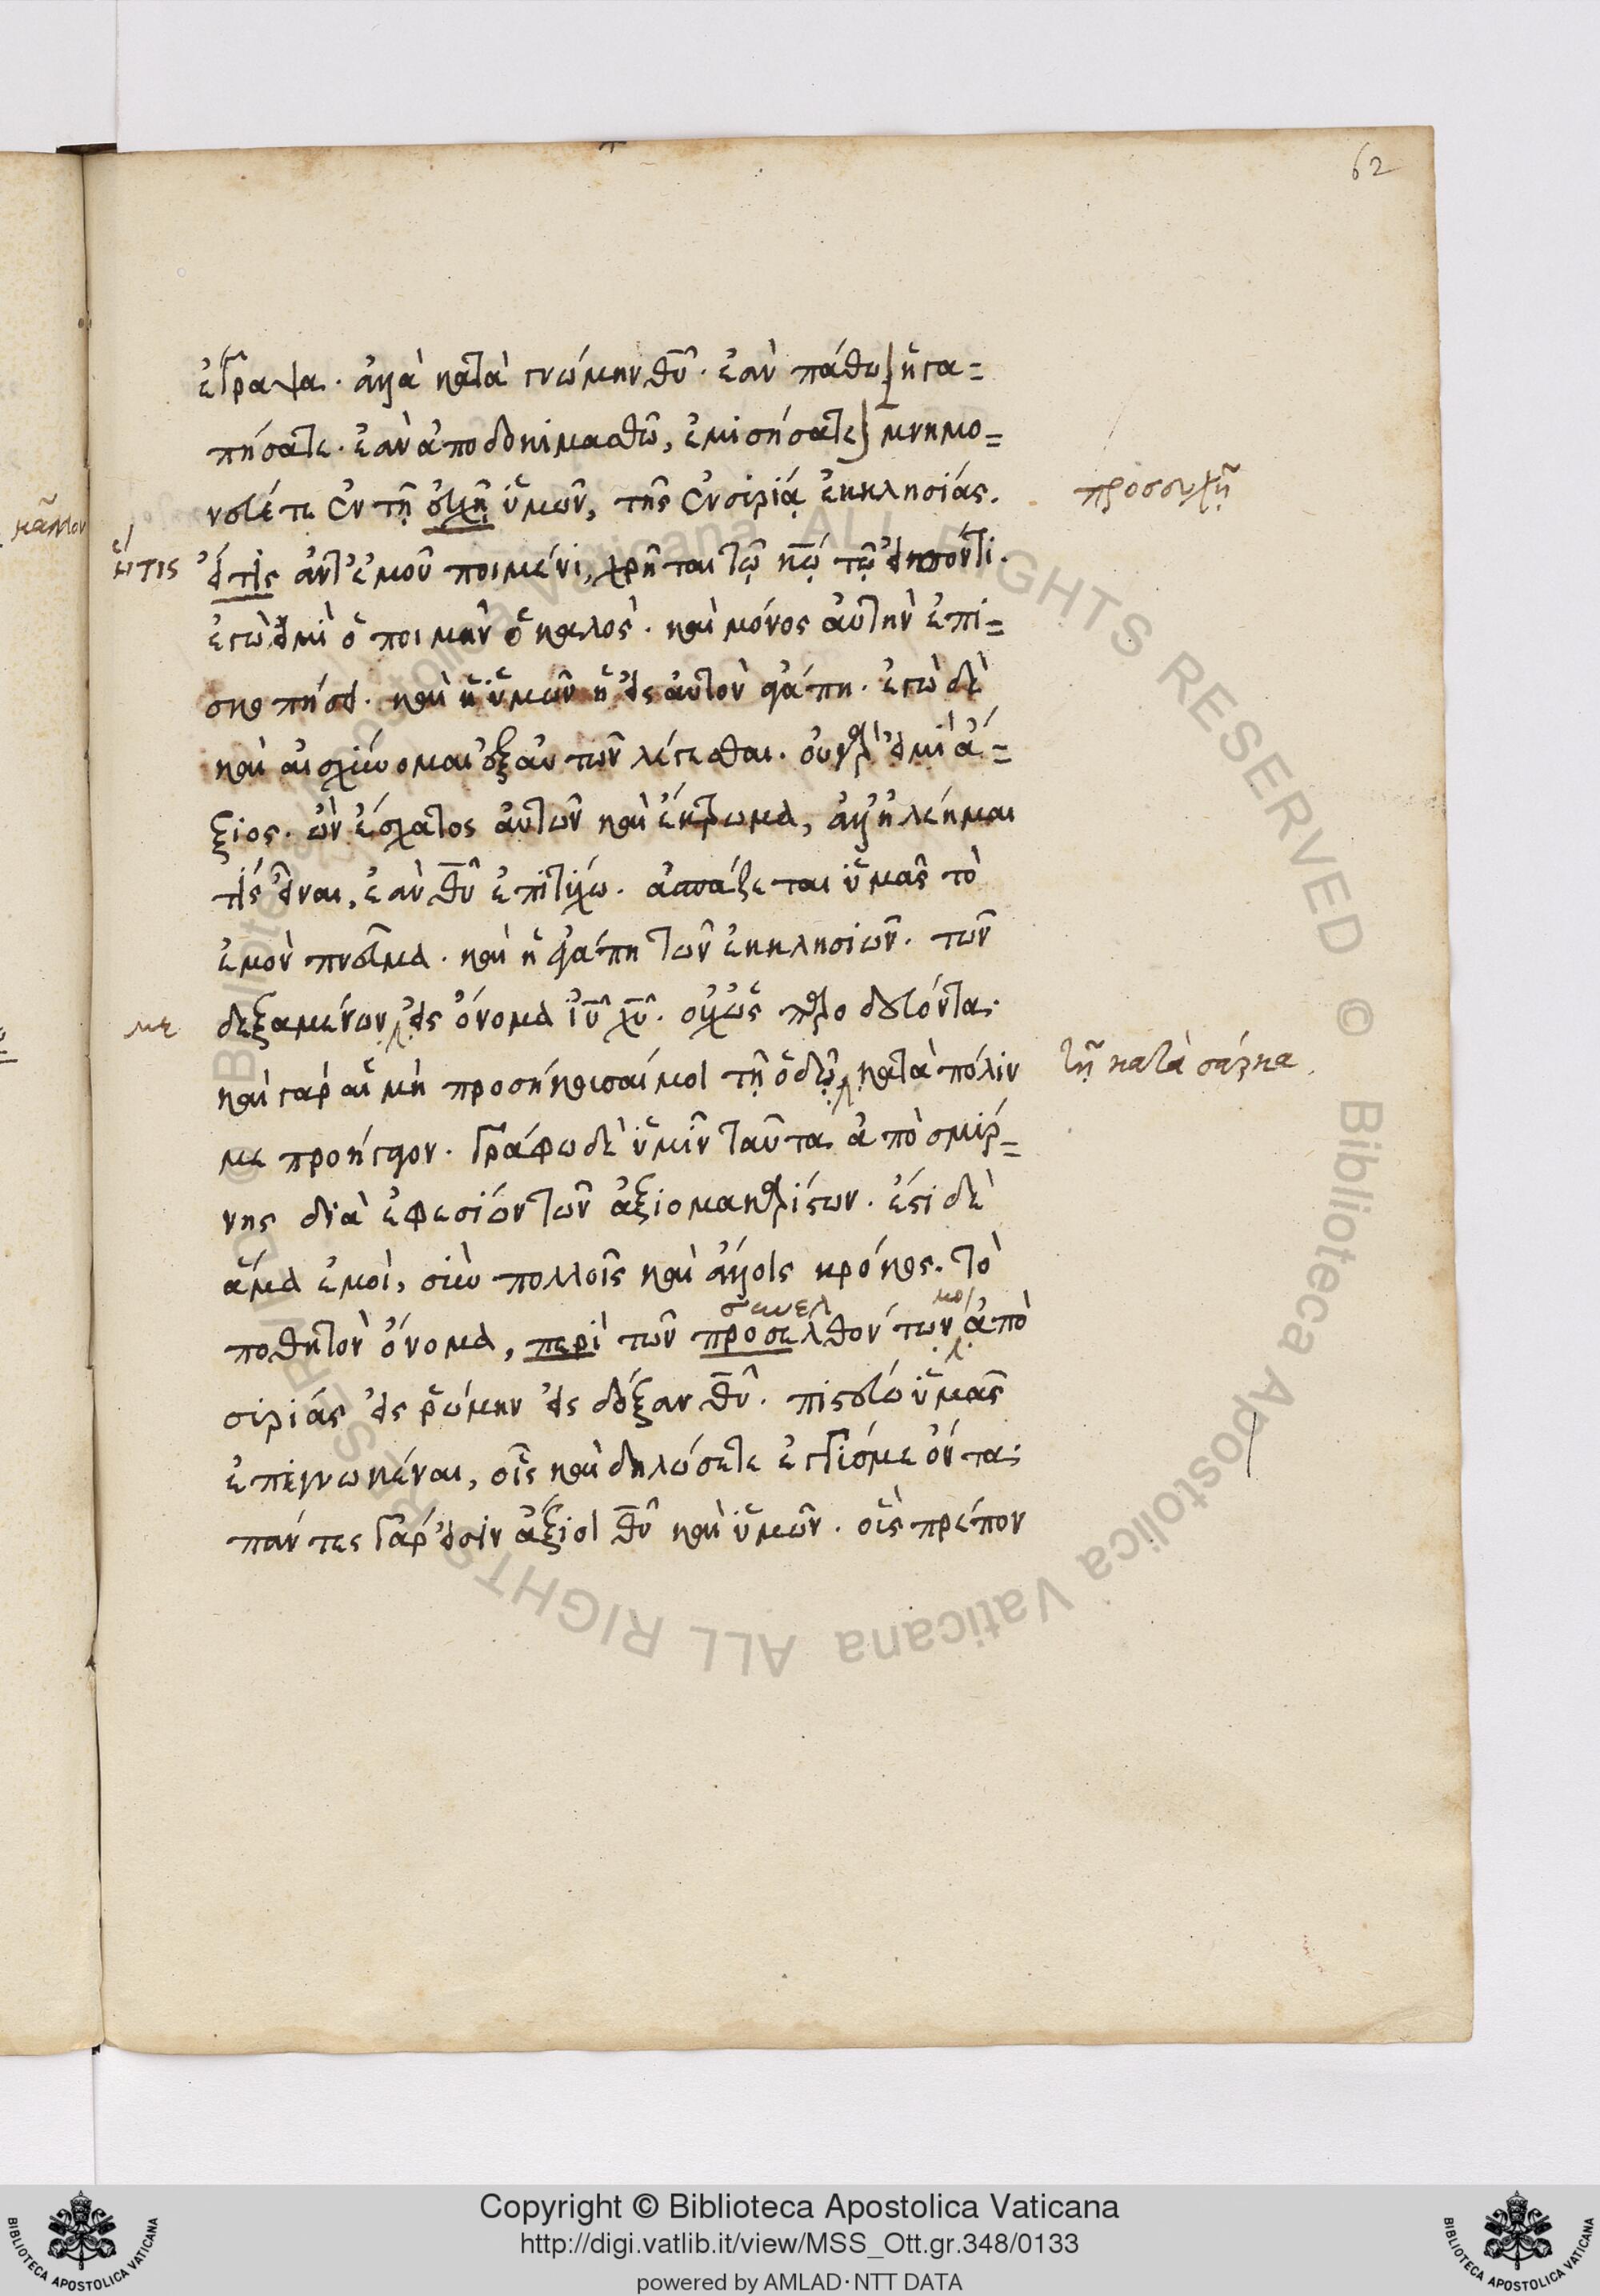 62
ἔγραψα. ἀλλὰ κατὰ γνώμην θ̅υ̅. ἐὰν πάθω} ἠγα=
πήσατε. ἐὰν ἀποδοκιμασθῶ, ἐμισήσατε} μνημο=
νεύετε ἐν τῇ εὐχῇ ὑμῶν, τῆς ἐν συρίᾳ ἐκκλησίας.
προσευχῇ
μᾶλλον
ἥτις
εἴ τις ἀντ' ἐμοῦ ποιμένι, χρῆται τῷ κ̅ῳ̅ τῷ εἰπόντι.
ἐγώ εἰμι ὁ ποιμὴν ὁ καλός. καὶ μόνος αὐτὴν ἐπι=
σκοπήσει. καὶ ἡ ὑμῶν ἡ εἰς αὐτὸν ἀγάπη. ἐγὼ δὲ
καὶ αἰσχύνομαι ἐξ αὐτῶν λέγεσθαι. οὐ γάρ εἰμι ἄ=
ξιος. ὢν ἔσχατος αὐτῶν καὶ ἔκτρωμα, ἀλλ' ἠλέημαι
τίς εἶναι, ἐὰν θ̅υ̅ ἐπιτύχω. ἀσπάζεται ὑμᾶς τὸ
ἐμὸν πνεῦμα. καὶ ἡ ἀγάπη τῶν ἐκκλησιῶν. τῶν
με
δεξαμένων εἰς ὄνομα ι̅υ̅ χ̅υ̅. οὐχ ὡς παροδεύοντα.
καὶ γὰρ αἱ μὴ προσήκουσαί μοι τῇ ὁδῷ, κατὰ πόλιν
τῇ κατὰ σάρκα.
με προῆγον. γράφω δὲ ὑμῖν ταῦτα ἀπὸ σμύρ=
νης διὰ ἐφεσίων τῶν ἀξιομακαρίστων. ἔστι δὲ
ἅμα ἐμοὶ, σὺν πολλοῖς καὶ ἄλλοις κρόκος. τὸ
συνελ μοι
ποθητὸν ὄνομα, περὶ τῶν προσελθόντων ἀπὸ
συρίας εἰς ῥώμην εἰς δόξαν θ̅υ̅. πιστεύω ὑμᾶς
ἐπεγνωκέναι, οἷς καὶ δηλώσετε ἐγγύς με ὄντα.
πάντες γάρ εἰσιν ἄξιοι θ̅υ̅ καὶ ὑμῶν. οὓς πρέπον
© Biblioteca Apostolica Vaticana ALL RIGHTS RESERVED © Biblioteca Apostolica Vaticana ALL RIGHTS RESERVED
Copyright © Biblioteca Apostolica Vaticana
http://digi.vatlib.it/view/MSS_Ott.gr.348/0133
powered by AMLAD·NTT DATA
BIBLIOTECA APOSTOLICA VATICANA
BIBLIOTECA APOSTOLICA VATICANA